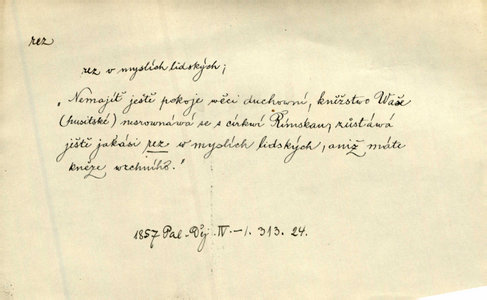 rez
rez v myslích lidských;
„Nemajíť ještě pokoje věci duchovní, kněžstvo Vaše
(husitské) nesrovnává se s církví Římskau, zůstává
ještě jakási rez w myslích lidských, aniž máte
kněze wrchního.“
1857 Pal-Děj. IV-1. 313. 24.